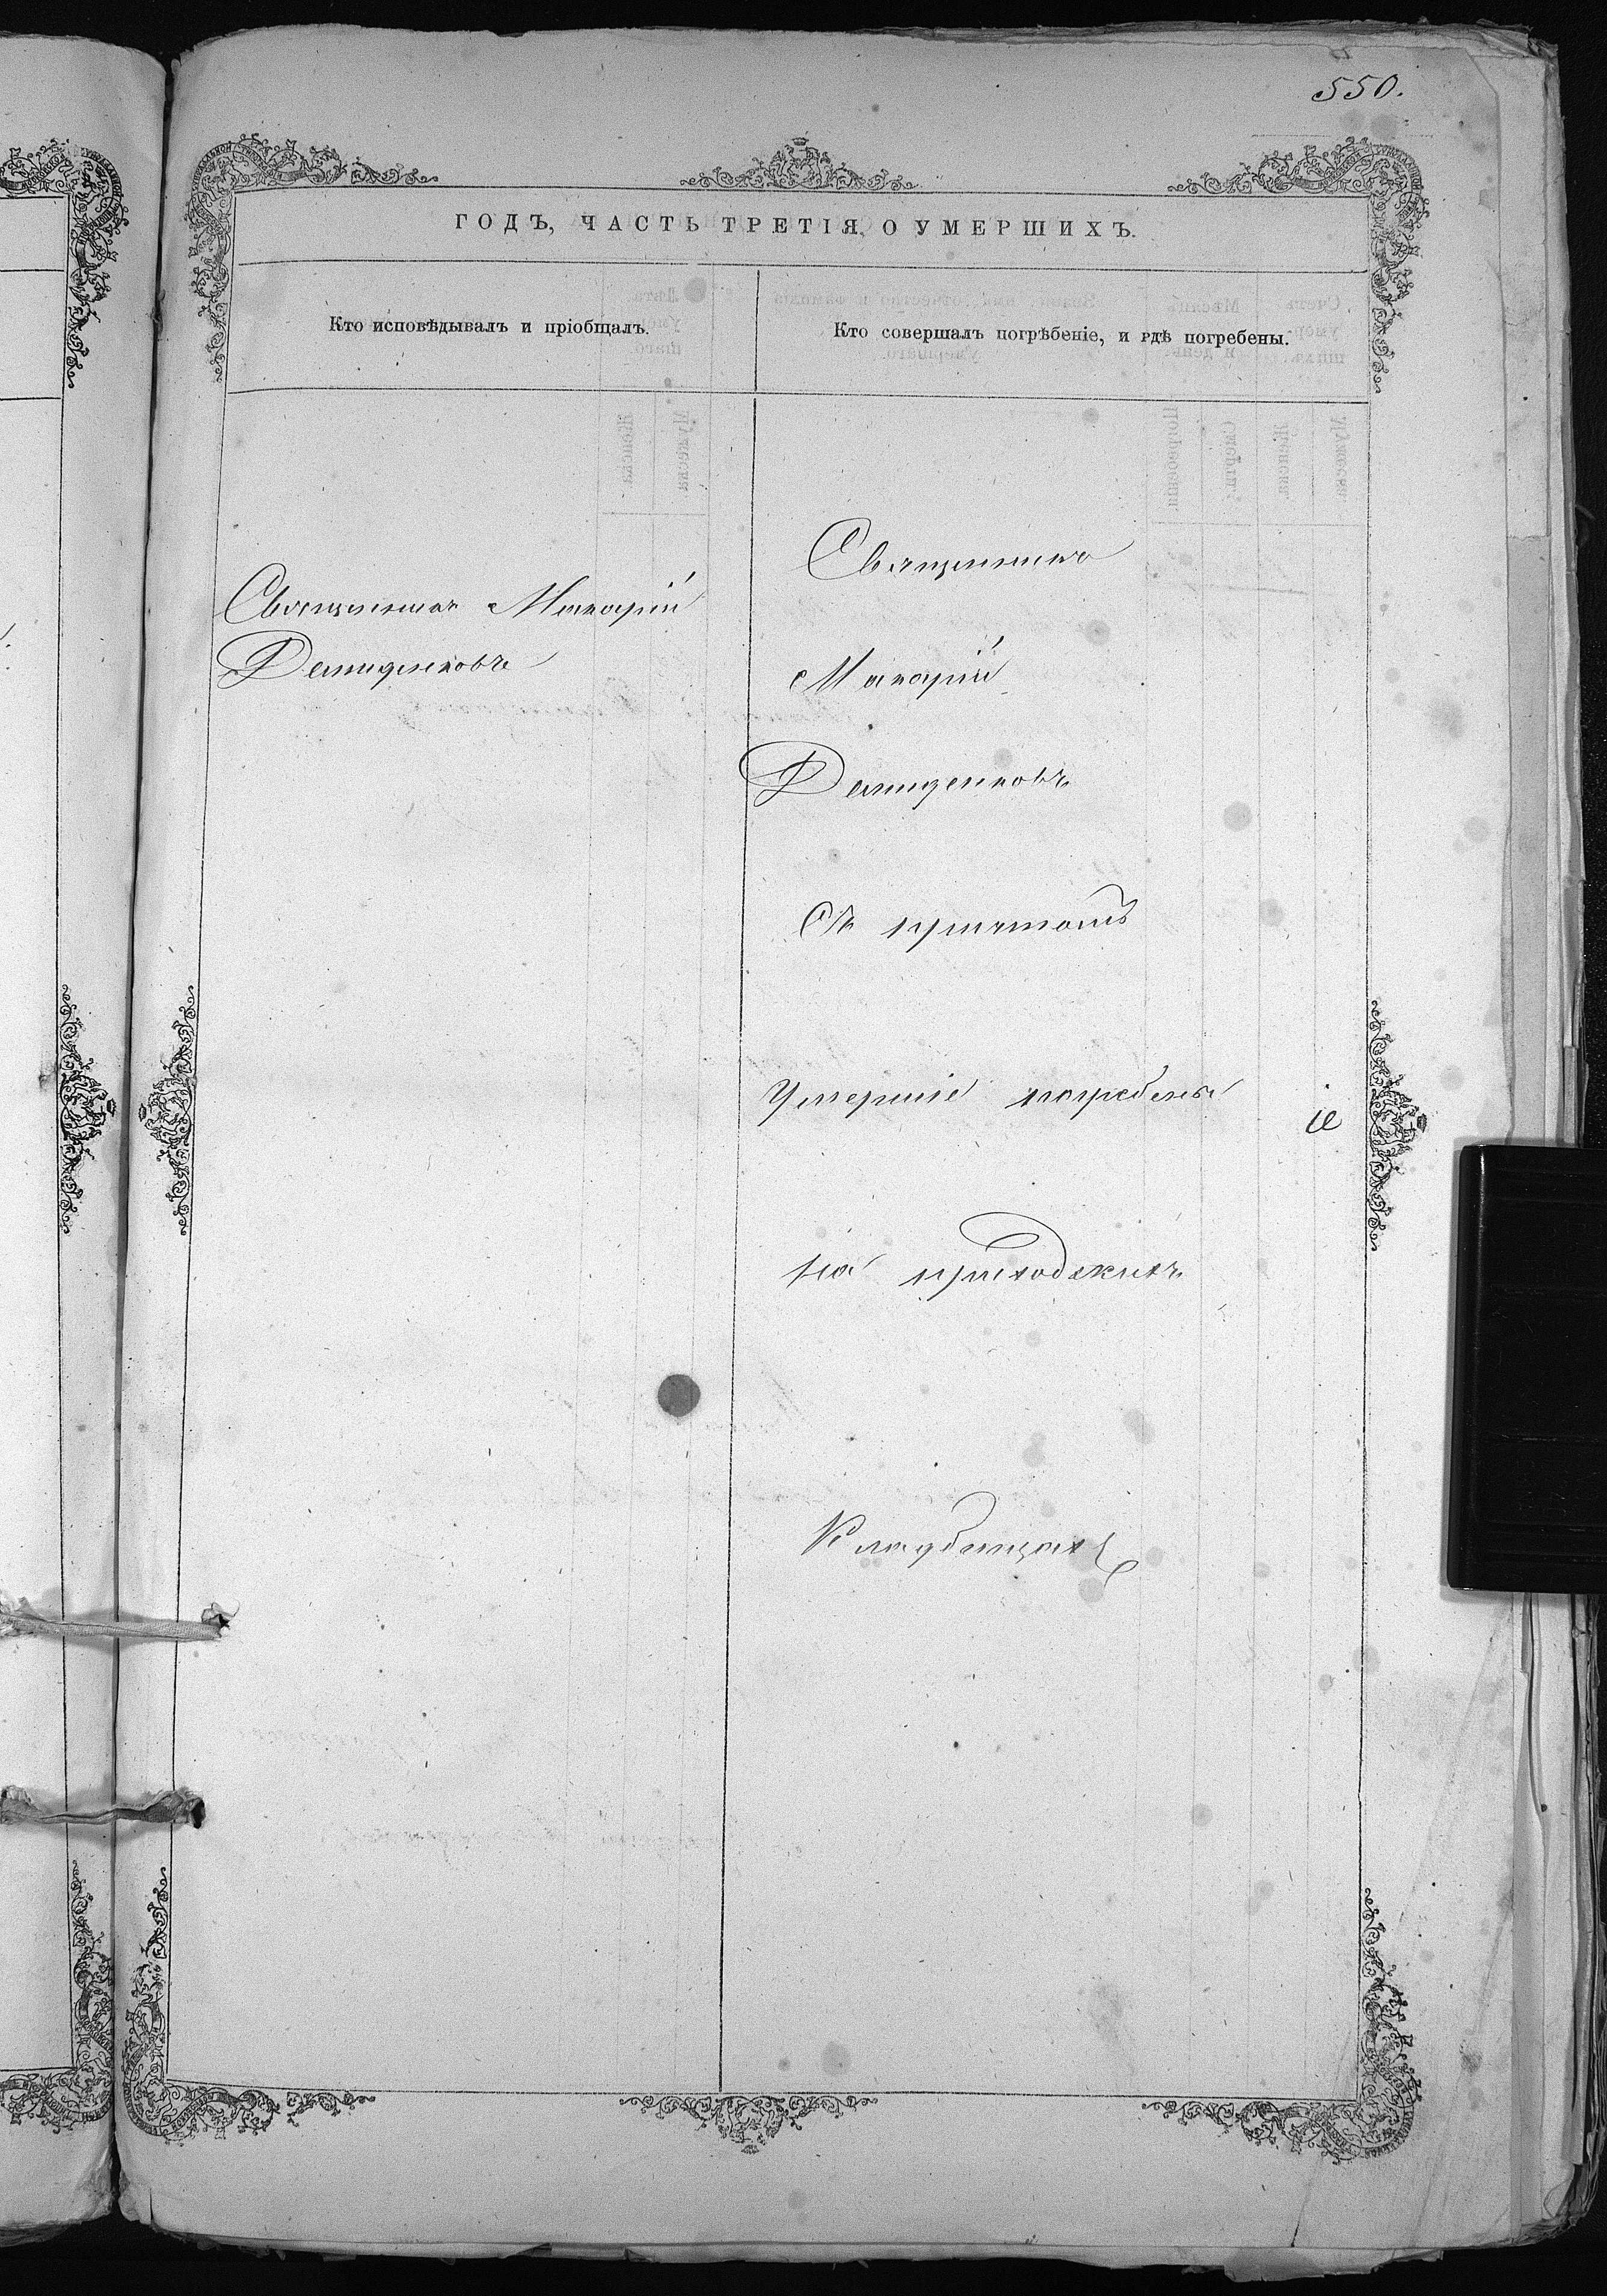 550.
ГОДЪ, ЧАСТЬ ТРЕТІЯ, О УМЕРШИХЪ.
Кто исповѣдывалъ и пріобщалъ.
Кто совершалъ погрѣбеніе, и гдѣ погребены.
Священникъ Макарій
Демиденковъ
Священникъ
Макарій
Демиденковъ
Съ причтомъ
Умершіе погребены
на приходскихъ
Кладбищахъ